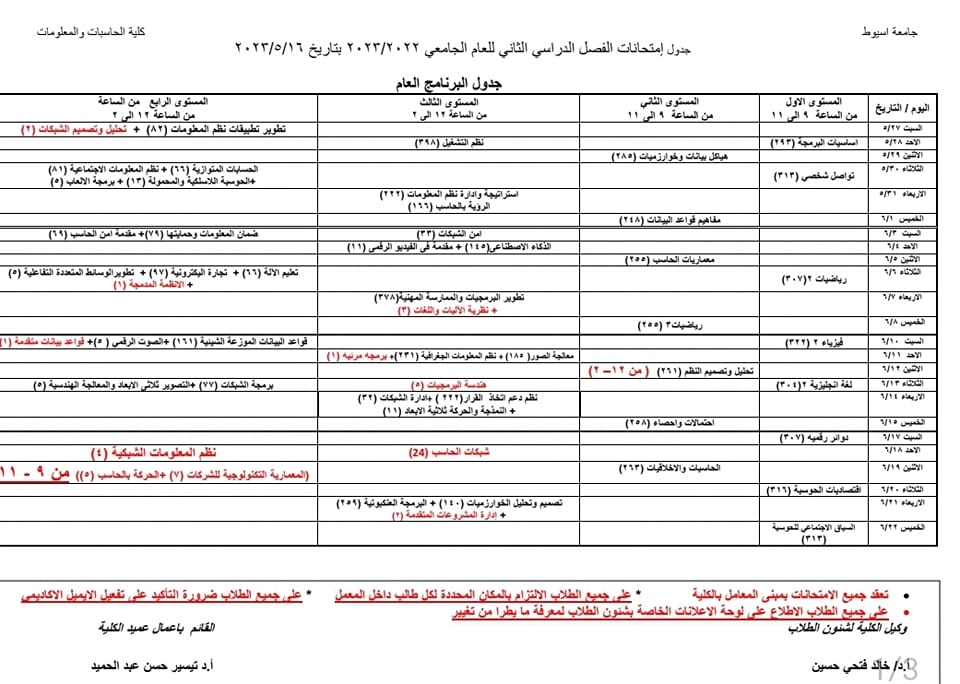 جامعة اسيوط
كلية الحاسبات والمعلومات
جدول إمتحانات الفصل الدراسي الثاني للعام الجامعي ٢٠٢٣/٢٠٢٢ بتاريخ ٢٠٢٣/٥/١٦
جدول البرنامج العام
اليوم / التاريخ | المستوى الاول من الساعة ٩ الى ١١ | المستوى الثاني من الساعة ٩ الى ١١ | المستوى الثالث من الساعة ١٢ الى ٢ | المستوى الرابع من الساعة ١٢ الى ٢
السبت ٥/٢٧ | تطوير تطبيقات نظم المعلومات (٨٢) + تحليل وتصميم الشبكات (٢)
الاحد ٥/٢٨ | اساسيات البرمجة (٢٩٣) | نظم التشغيل (٣٩٨)
الاثنين ٥/٢٩ | هياكل بيانات وخوارزميات (٢٨٥)
الثلاثاء ٥/٣٠ | تواصل شخصي (٣١٣) | الحسابات المتوازية (٦٦) + نظم المعلومات الاجتماعية (٨١)
+الحوسبة اللاسلكية والمحمولة (١٣) + برمجة الالعاب (٥)
الاربعاء ٥/٣١ | استراتيجة وادارة نظم المعلومات (٢٢٢)
الرؤية بالحاسب (١٦٦)
الخميس ٦/١ | مفاهيم قواعد البيانات (٢٤٨)
السبت ٦/٣ | امن الشبكات (٣٣) | ضمان المعلومات وحمايتها (٧٩)+ مقدمة امن الحاسب (٦٩)
الاحد ٦/٤ | الذكاء الاصطناعى(١٤٥) + مقدمة فى الفيديو الرقمى (١١)
الاثنين ٦/٥ | معماريات الحاسب (٢٥٥)
الثلاثاء ٦/٦ | رياضيات ٢(٣٠٧) | تعليم الألة (٦٦) + تجارة اليكترونية (٩٧) + تطويرالوسائط المتعددة التفاعلية (٥)
+ الانظمة المدمجة (١)
الاربعاء ٦/٧ | تطوير البرمجيات والممارسة المهنية(٣٧٨)
+ نظرية الأليات واللغات (٣)
الخميس ٦/٨ | رياضيات٣ (٢٥٥)
السبت ٦/١٠ | فيزياء ٢ (٣٢٢) | قواعد البيانات الموزعة الشيئية (١٦١) +الصوت الرقمي (٥)+ قواعد بيانات متقدمة (١)
الاحد ٦/١١ | معالجة الصور( ١٨٥) + نظم المعلومات الجغرافية (٢٣١)+ برمجه مرئيه (١)
الاثنين ٦/١٢ | تحليل وتصميم النظم (٢٦١) ( من ١٢– ٢)
الثلاثاء ٦/١٣ | لغة انجليزية ٢(٣٠٤) | هندسة البرمجيات (٥) | برمجة الشبكات (٧٧) +التصوير ثلاثى الابعاد والمعالجة الهندسية (٥)
الاربعاء ٦/١٤ | نظم دعم اتخاذ القرار(٢٢٢ ) +ادارة الشبكات (٣٢)
+ النمذجة والحركة ثلاثية الابعاد (١١)
الخميس ٦/١٥ | احتمالات واحصاء (٢٥٨)
السبت ٦/١٧ | دوائر رقميه (٣٠٧)
الاحد ٦/١٨ | شبكات الحاسب (24) | نظم المعلومات الشبكية (٤)
الاثنين ٦/١٩ | الحاسبات والاخلاقيات (٢٦٣) | (المعمارية التكنولوجية للشركات (٧) +الحركة بالحاسب (٥)) من ٩ - ١١
الثلاثاء ٦/٢٠ | اقتصاديات الحوسبة (٣١٦)
الاربعاء ٦/٢١ | تصميم وتحليل الخوارزميات (١٤٠) + البرمجة العنكبوتية (٢٥٩)
+ إدارة المشروعات المتقدمة (٢)
الخميس ٦/٢٢ | السياق الاجتماعي للحوسبة (٣١٣)
• تعقد جميع الامتحانات بمبنى المعامل بالكلية * على جميع الطلاب الالتزام بالمكان المحددة لكل طالب داخل المعمل * على جميع الطلاب ضرورة التأكيد على تفعيل الايميل الاكاديمي
• على جميع الطلاب الاطلاع على لوحة الاعلانات الخاصة بشئون الطلاب لمعرفة ما يطرا من تغيير
وكيل الكلية لشئون الطلاب
القائم باعمال عميد الكلية
أ.د/ خالد فتحي حسين
أ.د تيسير حسن عبد الحميد
1/3